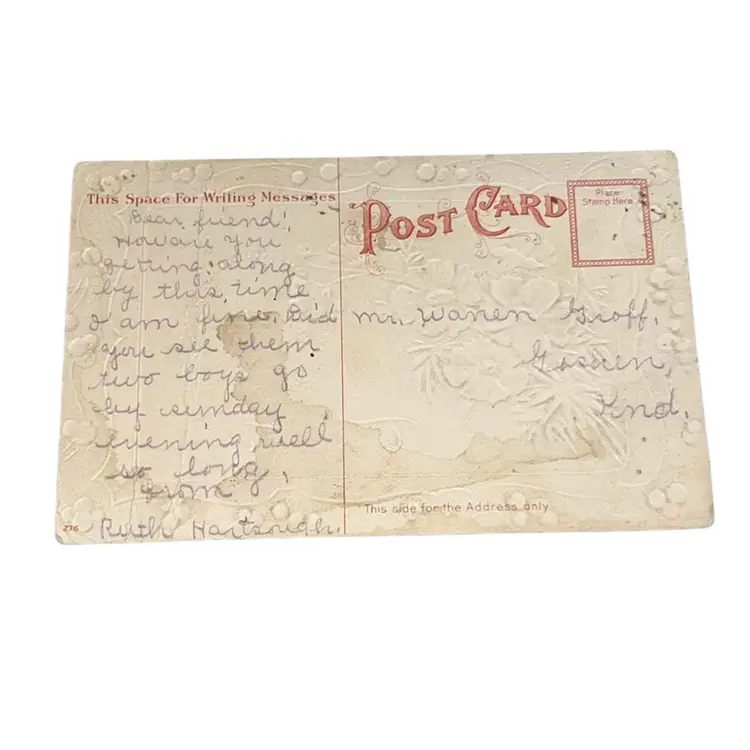 This Space For Writing Messages
POST CARD
Place
Stamp Here
Dear friend!
How are you
getting along
by this time
I am fine. Did
you see them
two boys go
by sunday
evening well
so long,
from
Ruth Hartsough.
Mr. Warren Groff,
Goshen,
Ind.
This side for the Address only
276